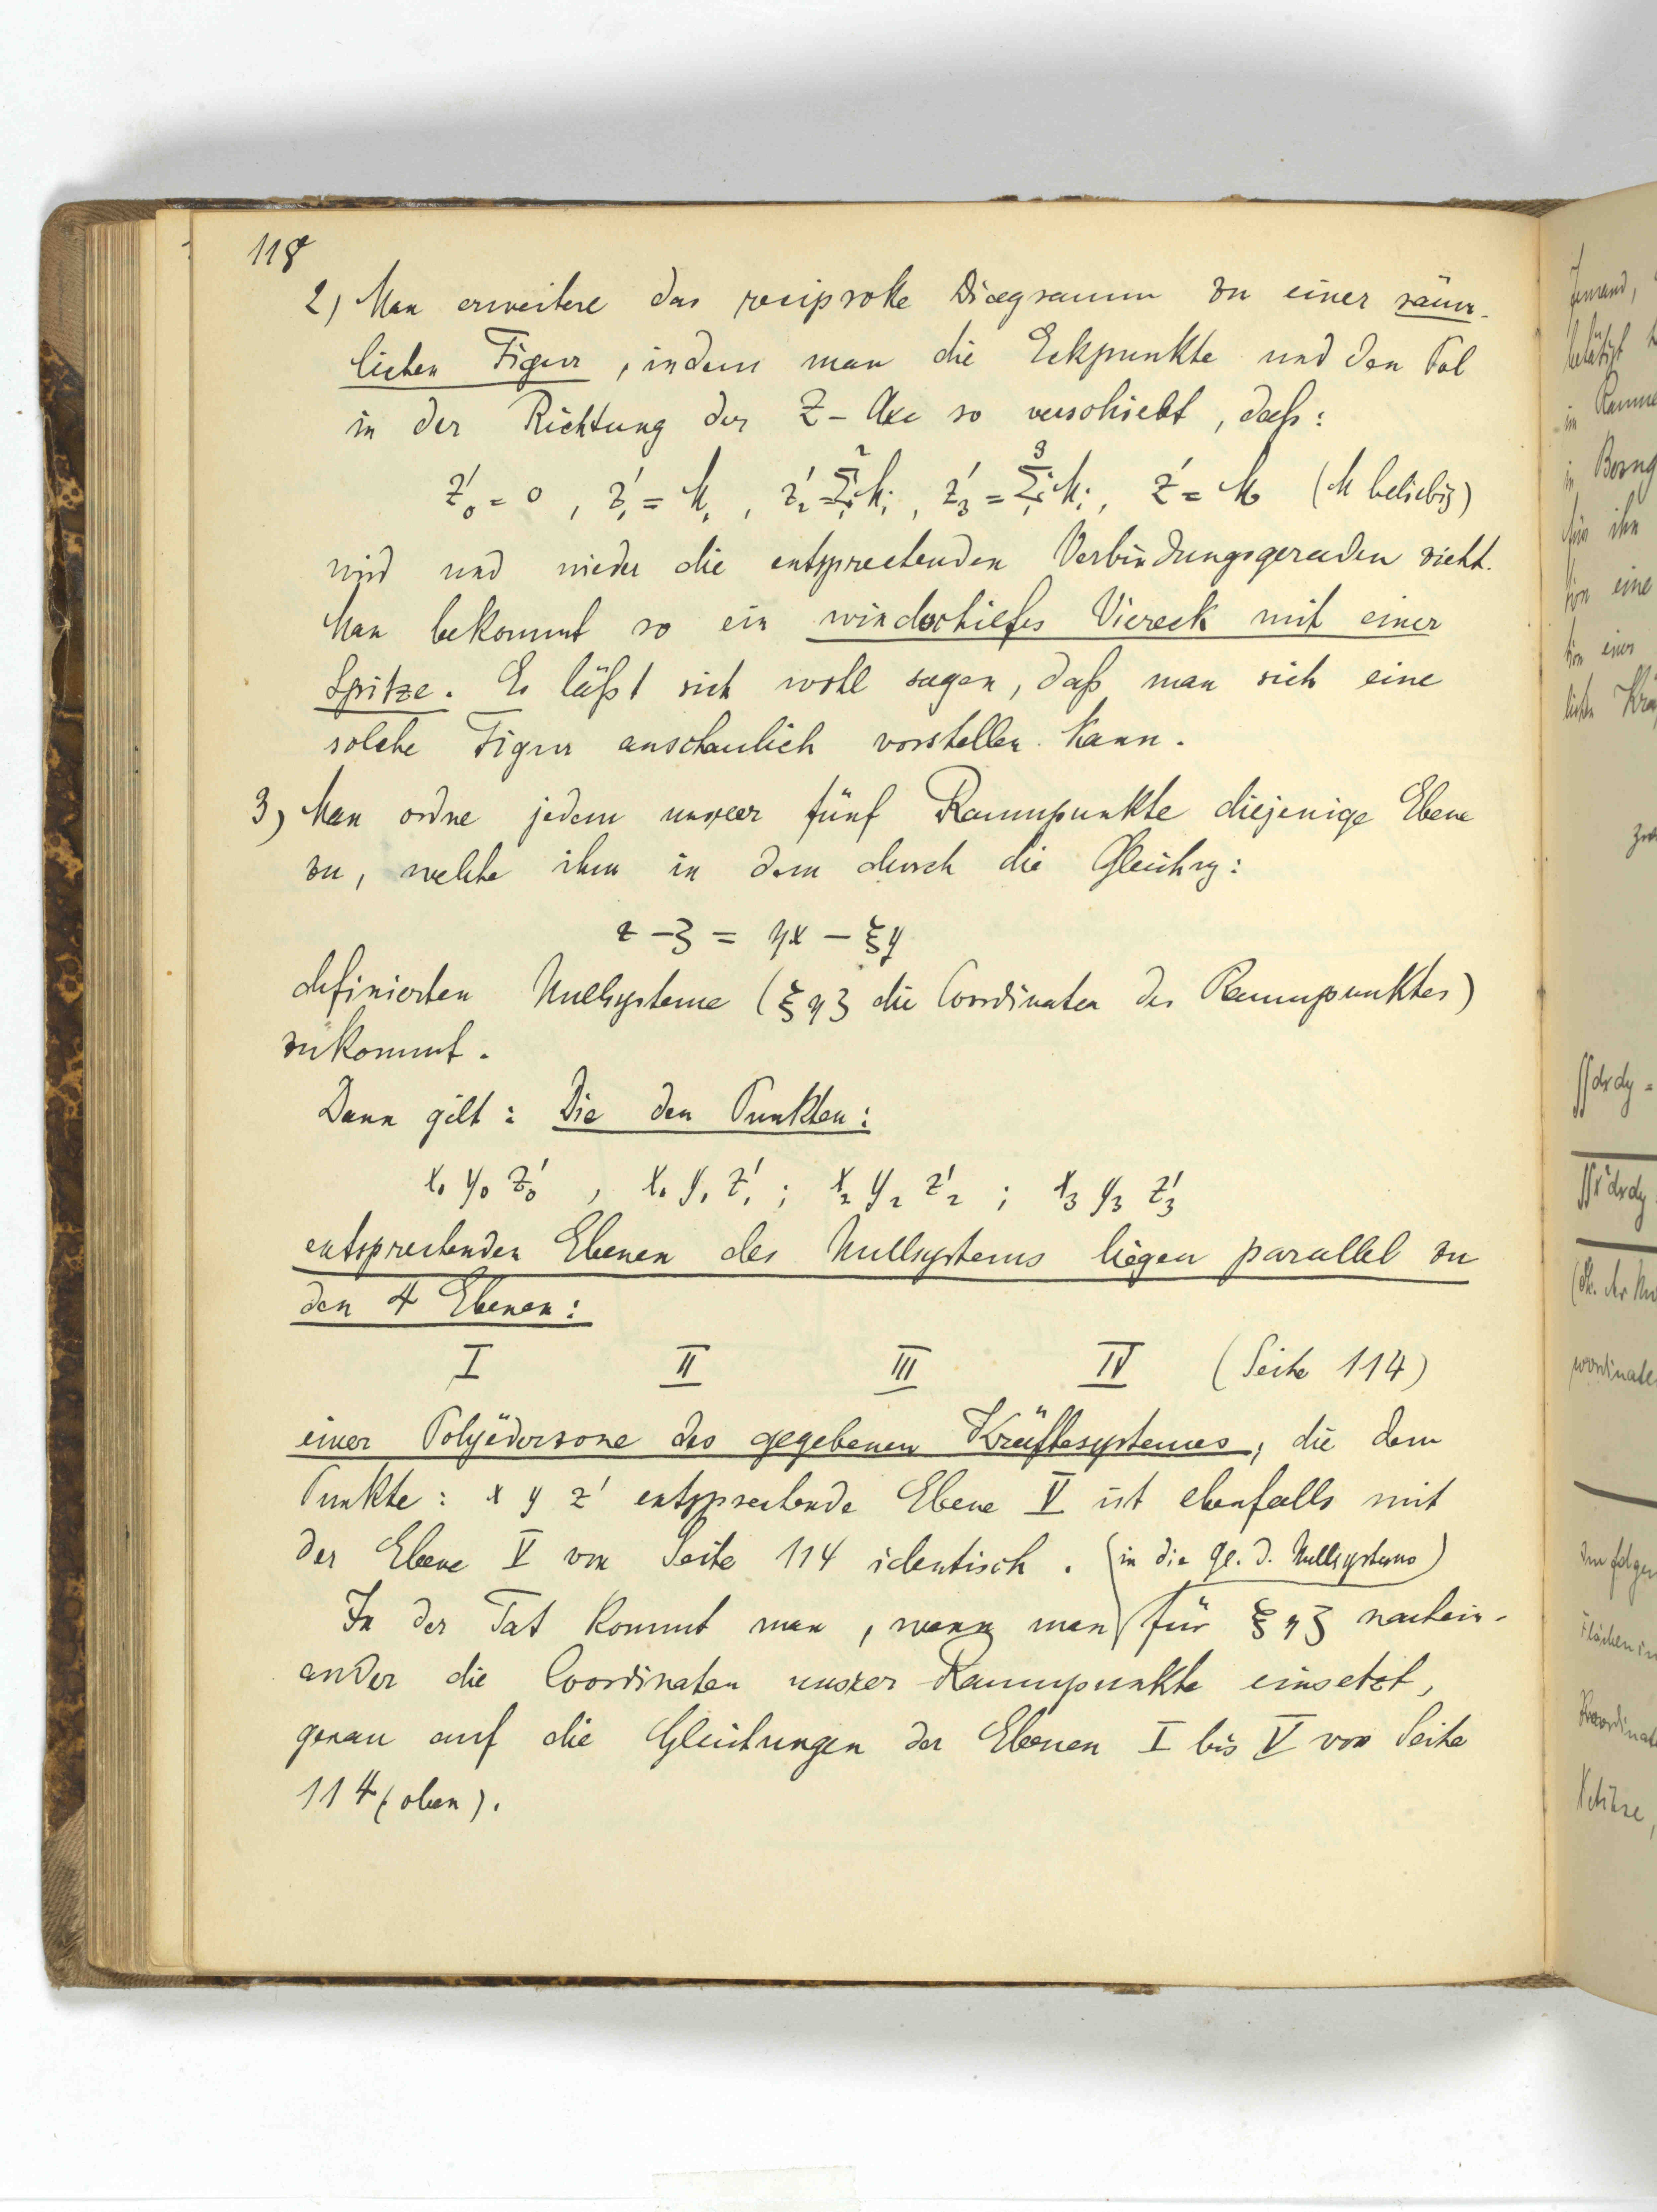 118
2) Man erweitere das reciproke Diagramm zu einer räum-
lichen Figur, indem man die Eckpunkte und den Pol
in der Richtung der Z-Axe so verschiebt, daß:
z'₀ = 0, z'₁ = M₁, z'₂ = Σ₁² Mᵢ, z'₃ = Σ₁³ Mᵢ, z' = M (M beliebig)
wird und wieder die entsprechenden Verbindungsgeraden zieht.
Man bekommt so ein windschiefes Viereck mit einer
Spitze. Es läßt sich wohl sagen, daß man sich eine
solche Figur anschaulich vorstellen kann.
3) Man ordne jedem unsrer fünf Raumpunkte diejenige Ebene
zu, welche ihm in dem durch die Gleichg:
z - ζ = ηx - ξy
definierten Nullsysteme (ξ η ζ die Coordinaten des Raumpunktes)
zukommt.
Dann gilt: Die den Punkten:
x₀ y₀ z'₀, x₁ y₁ z'₁; x₂ y₂ z'₂; x₃ y₃ z'₃
entsprechenden Ebenen des Nullsystems liegen parallel zu
den 4 Ebenen:
I II III IV (Seite 114)
einer Polyederzone des gegebenen Kräftesystemes, die dem
Punkte: x y z' entsprechende Ebene V ist ebenfalls mit
der Ebene V von Seite 114 identisch. (in die Gl. d. Nullsystems)
In der Tat kommt man, wenn man für ξ η ζ nachein-
ander die Coordinaten unsrer Raumpunkte einsetzt,
genau auf die Gleichungen der Ebenen I bis V von Seite
114 (oben).
∫∫dxdy =